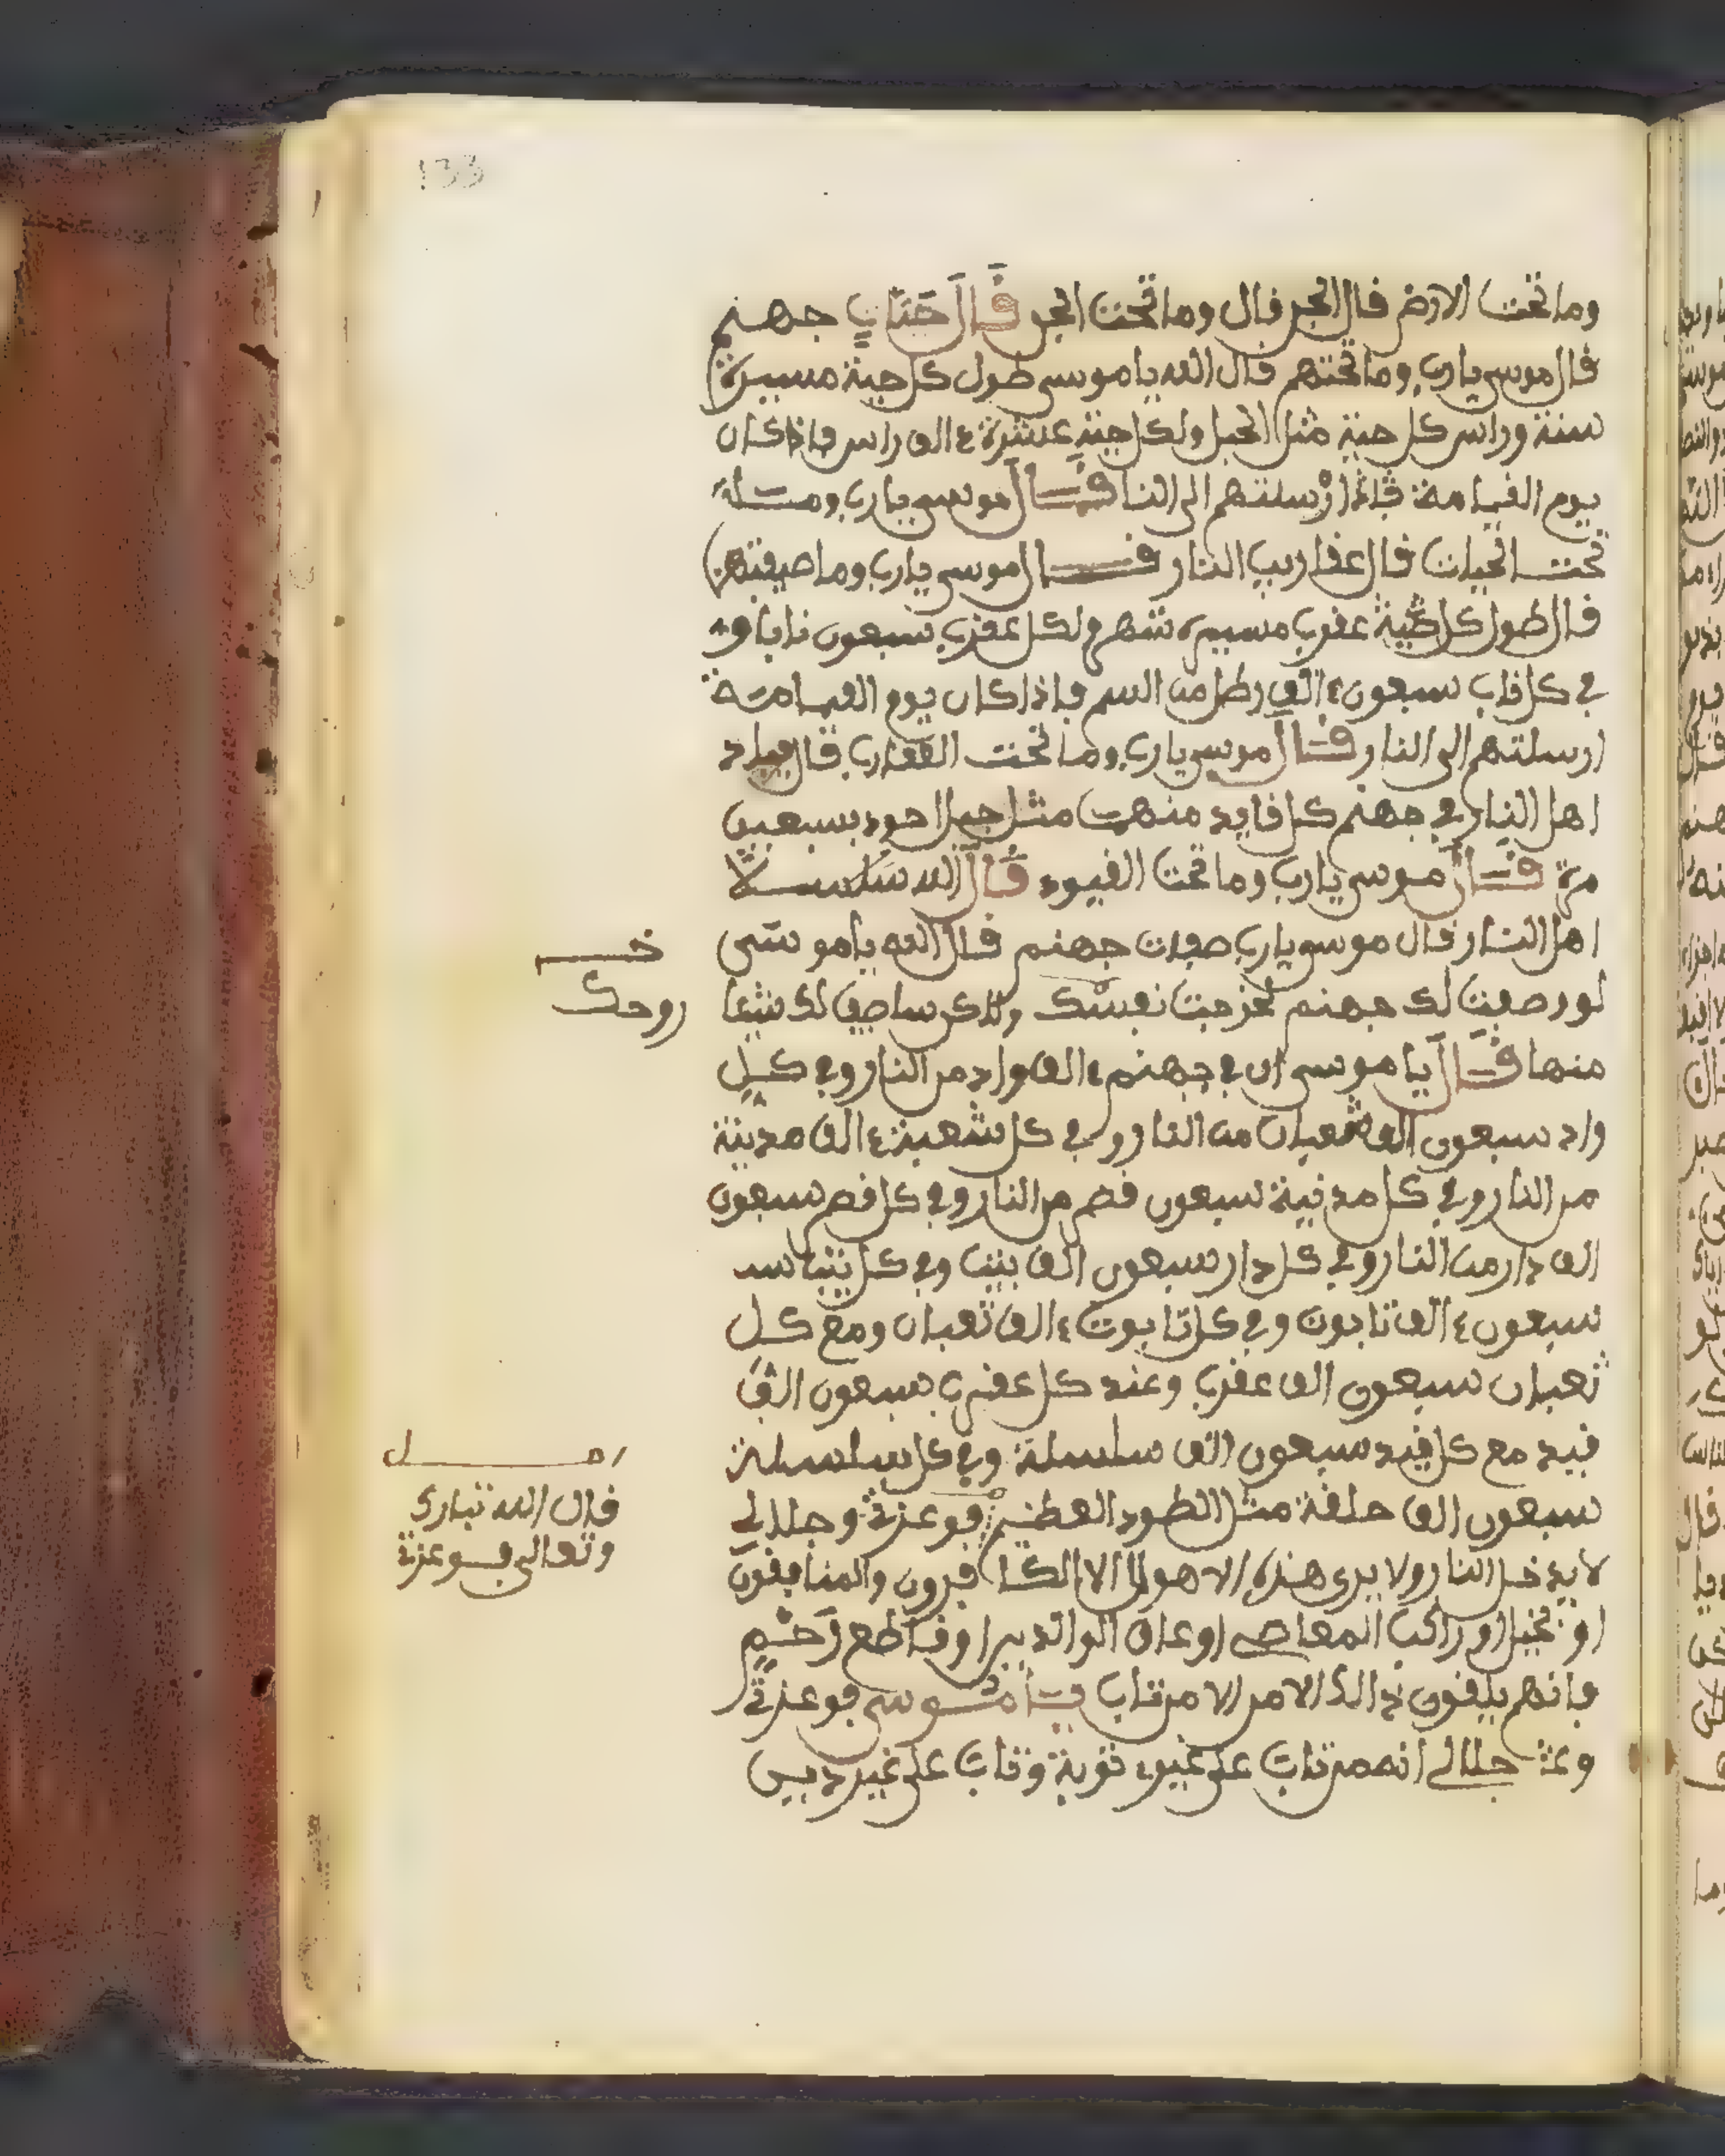 133
وما تحت الارض قال البحر قال وما تحت البحر قال حيات جهنم
قال موسى يارب وما تحتهم قال الله يا موسى طول كل حية مسيرة
سنة وراس كل حية مثل الجبل ولكل حية عشرة الف راس فاذا كان
يوم القيامة ارسلتهم الى النا قال موسى يارب وما
تحت الحيات قال عقاريب النار قال موسى يارب وما صيفتهن
قال طول كل عقرب مسيرة شهر ولكل عقرب سبعون نابا و
في كل ناب سبعون الف رطل من السم فاذا كان يوم القيامة
ارسلتهم الى النار قال موسى يارب وما تحت العقارب قال
اهل النار في جهنم كل قايد منهن مثل جبل احود بسبعين
مرة قال موسى يارب وما تحت القيود قال الله سلاسلا
اهل النار قال موسى يارب صفات جهنم قال الله يا موسى
لو وصفت لك جهنم لخرجت نفسك ولاكن ساصف لك شيئا
خــ
روحك
منها قال يا موسى ان في جهنم الف واد من النار وفي كل
واد سبعون الف شعبان من النار وفي كل شعبة الف مدينة
من النار وفي كل مدنية سبعون قصر من النار وفي كل قصر سبعون
الف دار من النار وفي كل دار سبعون الف بيت وفي كل بيت سبـ
سبعون الف تابوت وفي كل تابوت الف ثعبان ومع كل
ثعبان سبعون الف عقرب وعند كل عقرب سبعون الف
قيد مع كل قيد سبعون الف سلسلة وفي كل سلسلة
سبعون الف حلقة مثل الطود العظيم فوعزتي وجلالي
قال الله تبارك
وتعالى فوعزتي
لا يدخل النار ولا يرى هذه الاهوال الا الكافرون والمنافقون
او بخيل او راكب المعاصي او عاق الوالدين او قاطع رحم
فانهم يلقون ذالك الامر الا من تاب يا موسى فوعزتي
وجلالي انه من تاب على غير توبة وتاب على غير دين